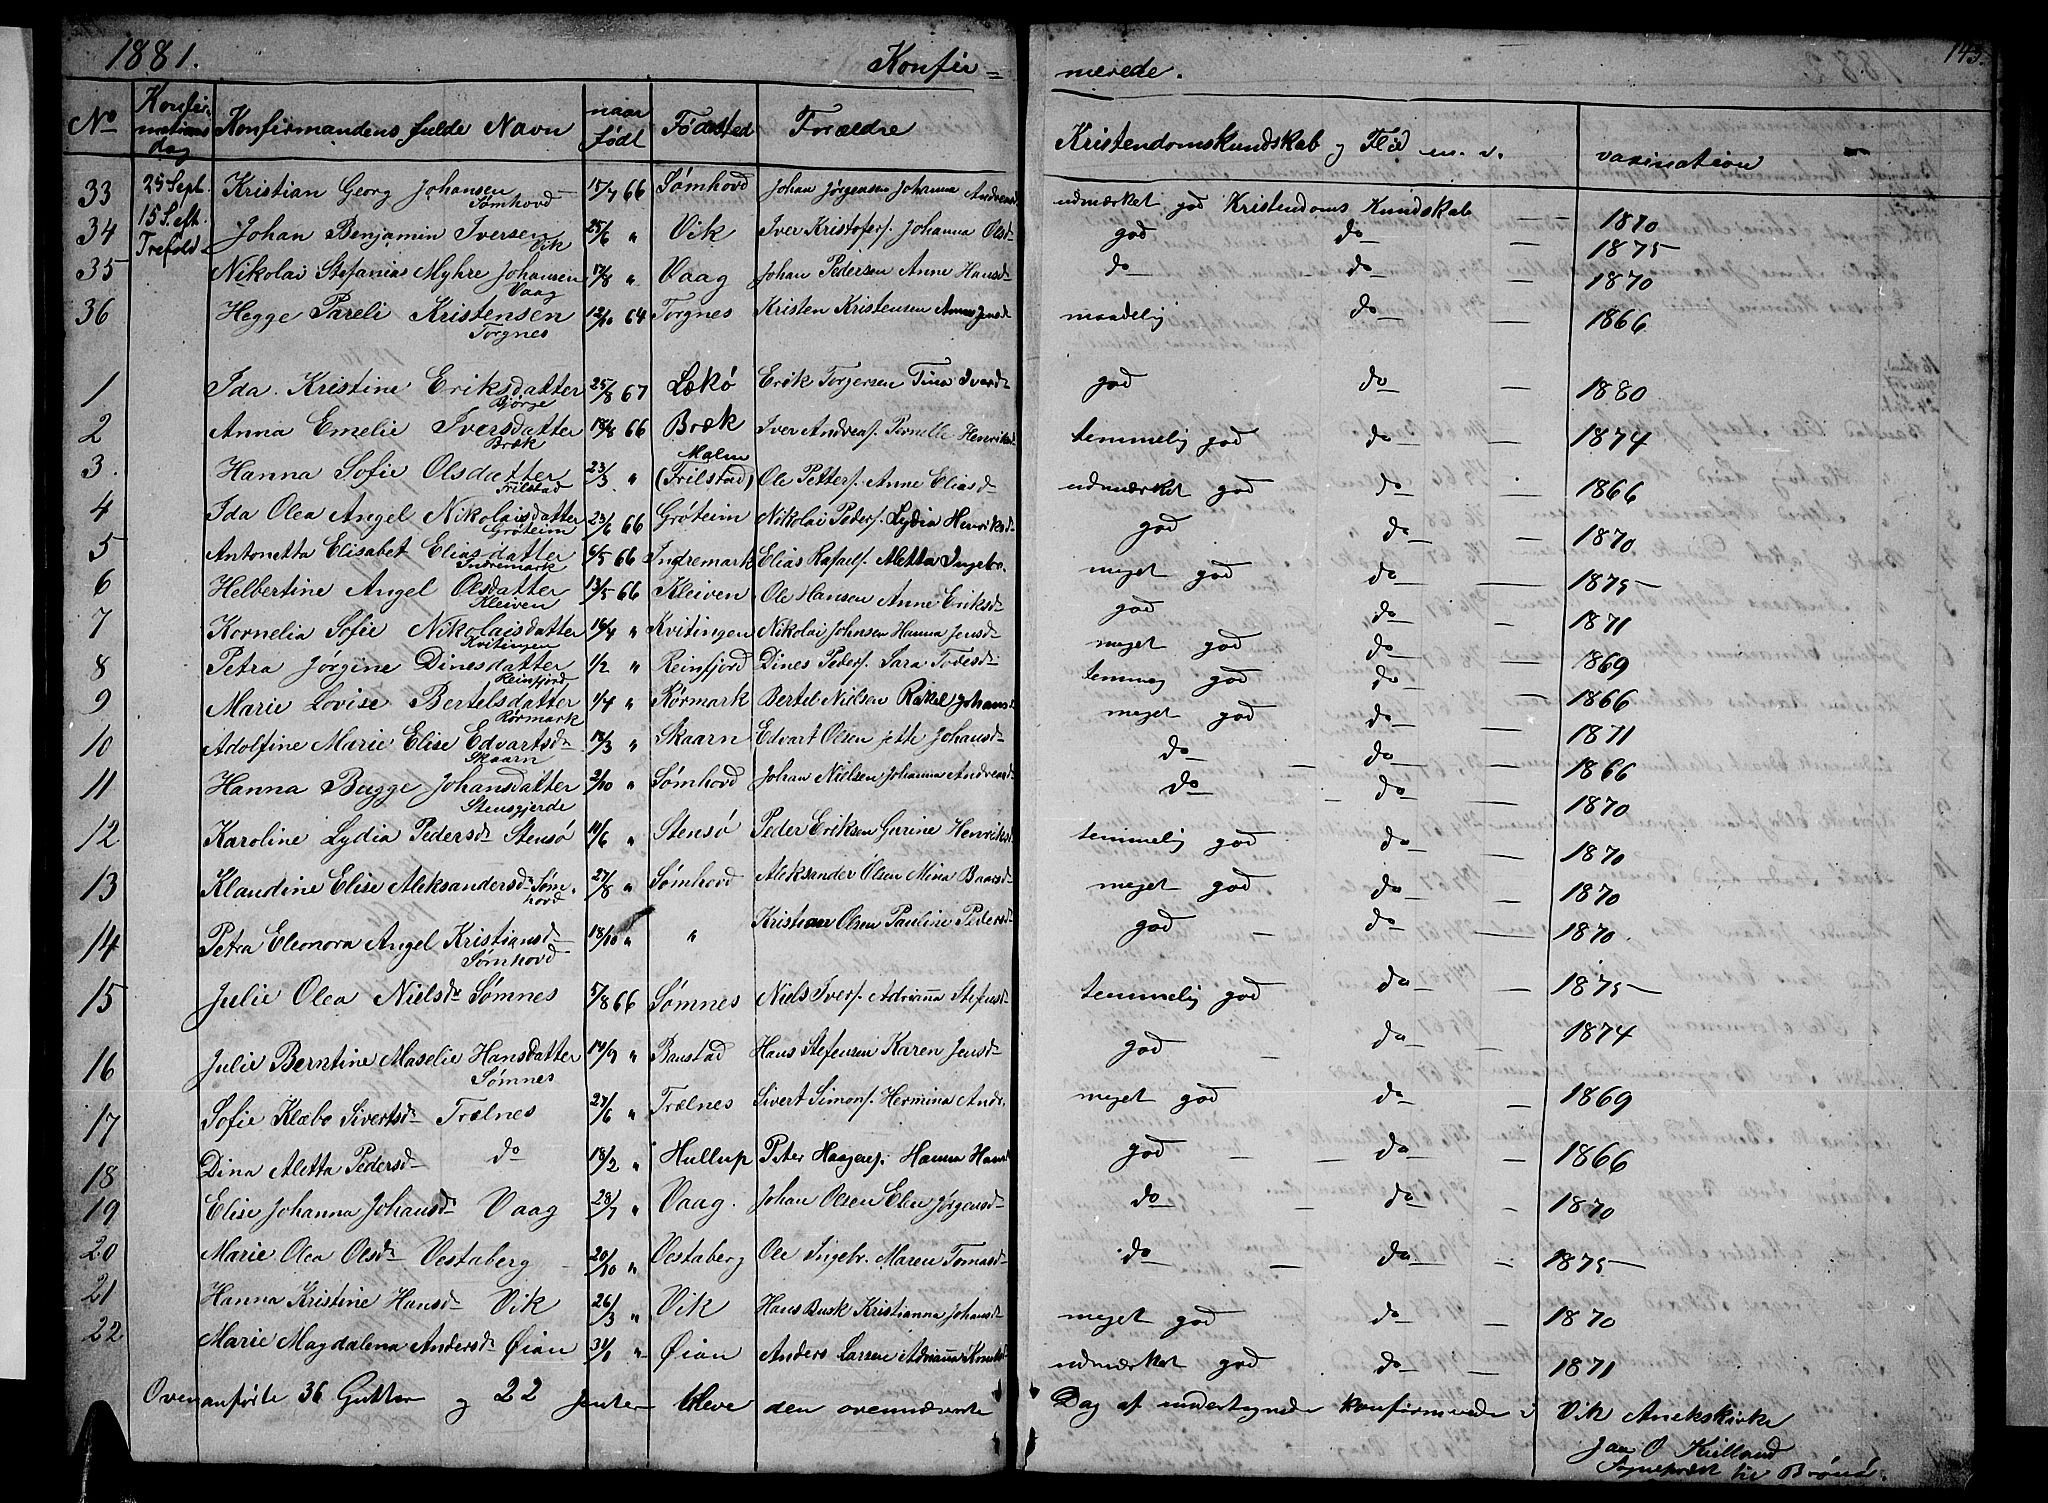 1881. Konfir=
merede. 143.
No Konfir-mations dag Konfirmandens fulde Navn naar født Fødested Forældre Kristendomskundskab og Flid m. v. vaxination
33 25 Sept Kristian Georg Johansen Sømhovd 15/7 66 Sømhovd Johan Jørgensen Johanna Andreasd udmærket god Kristendoms Kundskab — — 1870
34 15 S. eft. Trefold Johan Benjamin Iversen Vik 25/6 " Vik Iver Kristofers. Johanna Olsd god do — 1875
35 Nikolai Stefanias Myhre Johansen Vaag 17/8 " Vaag Johan Pedersen Anne Hansd do do — 1870
36 Hegge Pareli Kristensen Torgnes 12/10 64 Torgnes Kristen Kristensen Anne Jensd maadelig do — 1866
1 Ida Kristine Eriksdatter Bjørge 25/8 67 Lækø Erik Torgersen Tina Ivarsd god do — 1880
2 Anna Emelie Iversdatter Bræk 18/8 66 Bræk Iver Andreas. Pernelle Henriksd temmelig god do — 1874
3. Hanna Sofie Olsdatter Frilstad 23/3 " Malm (Frilstad) Ole Petters. Anne Eliasd udmærket god do — 1866
4 Ida Olea Angel Nikolaisdatter Grøteim 23/6 66 Grøteim Nikolai Peders. Lydia Henriksd god do — 1870
5 Antonetta Elisabet Eliasdatter Indremark 6/5 66 Indremark Elias Rafaels. Aletta Ingebr. meget god do — 1875
6 Helbertine Angel Olsdatter Kleiven 13/5 66 Kleiven Ole Hansen Anne Eriksd god do — 1871
7 Kornelia Sofie Nikolaisdatter Kvitingen 16/4 " Kvitingen Nikolai Johnsen Hanna Jensd meget god do — 1869
8 Petra Jørgine Dinesdatter Reinfjord 1/2 " Reinfjord Dines Peders. Sara Todesd temmeg god do — 1866
9 Marie Lovise Bertelsdatter Rørmark 1/4 " Rørmark Bertel Nielsen Rakel Johansd meget god do — 1871
10 Adolfine Marie Elise Edvartsd Skaarn 18/3 " Skaarn Edvart Olsen Jette Johansd do — do — 1866
11 Hanna Bugge Johansdatter Stensgjerde 2/10 " Sømhovd Johan Nielsen Johanna Andreasd do — do — 1870
12 Karoline Lydia Pedersd Stensø 11/6 " Stensø Peder Eriksen Gurine Henriksd temmelig god do — 1870
13 Klaudine Elise Aleksandersd Sømhovd 27/8 " Sømhovd Aleksander Olsen Mina Baarsd meget god do — 1870
14 Petra Eleonora Angel Kristiansd Sømhovd 18/10 " " Kristian Olsen Pauline Pedersd god — do — 1870.
15 Julie Olea Nielsd Sømnes 5/8 66 Sømnes Niels Ivers. Adrianna Stefensd temmelig god do — 1875
16 Julie Berntine Maselie Hansdatter Sømnes 14/9 " Baustad Hans Stefensen Karen Jensd god — do — 1874
17 Sofie Klæbo Sivertsd Trælnes 27/6 " Trælnes Sivert Simons. Hermina Andr. meget god do — 1869
18 Dina Aletta Pedersd do 18/2 " Hullup Peter Haagens. Hanna Hansd god — — do — 1866
19 Elise Johanna Johansd Vaag 28/7 " Vaag. Johan Olsen Elen Jørgensd do — do — 1870
20 Marie Olea Olsd Vestaberg 20/10 " Vestaberg Ole Ingebr. Maren Tomasd do — do — 1875
21 Hanna Kristine Hansd Vik 26/3 " Vik Hans Busk Kristianna Johansd meget god do — 1870
22 Marie Magdalena Andersd Øian 31/1 " Øian Anders Larsen Adrianna Knudsd udmærket god do — 1871
Ovenanførte 36 Gutter og 22 Jenter bleve den ovennævnte Dag af undertegnede konfirmerede i Vik Anekskirke
Jan O Kielland
Sogneprest til Brønø.